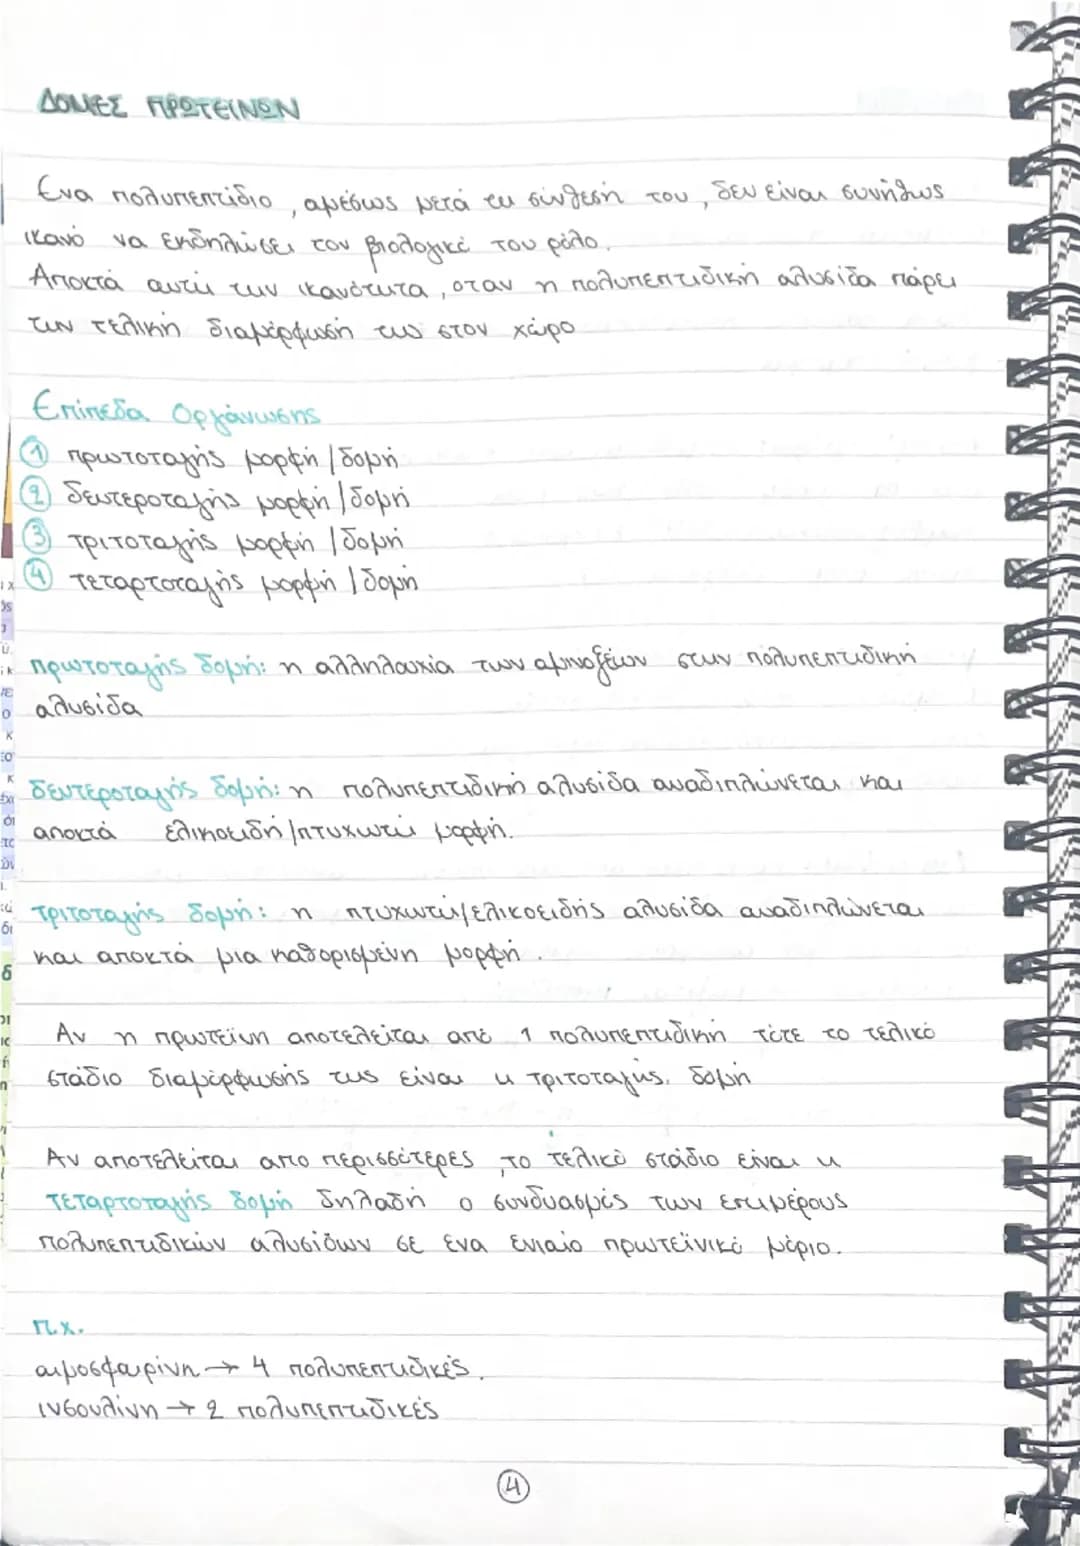 ΔΟΜΕΣ ΠΡΩΤΕΙΝΩΝ
Ενα πολυπεπτίδιο, αμέσως μετά τη σύνθεσή του, δεν είναι συνήθως
ικανό να εκδηλώσει τον βιολογικό του ρόλο.
Αποκτά αυτή την ικανότητα, οταν η πολυπεπτιδική αλυσίδα πάρει
την τελική διαμόρφωσή της στον χώρο
Επίπεδα Οργάνωσης
1 πρωτοταγής μορφή/δομή
2 δευτεροταγής μορφή/δομή
3 τριτοταγής μορφή/δομή
4 τεταρτοταγής μορφή/δομή
πρωτοταγής δομή: η αλληλουχία των αμινοξέων στην πολυπεπτιδική
αλυσίδα
δευτεροταγής δομή: η πολυπεπτιδική αλυσίδα αναδιπλώνεται και
αποκτά ελικοειδή/πτυχωτή μορφή.
τριτοταγής δομή: η πτυχωτή/ελικοειδής αλυσίδα αναδιπλώνεται
και αποκτά μια καθορισμένη μορφή.
Αν η πρωτεϊνη αποτελείται από 1 πολυπεπτιδική τότε το τελικό
στάδιο διαμόρφωσής της είναι η τριτοταγής. δομή
Αν αποτελείται απο περισσότερες, το τελικό στάδιο είναι η
τεταρτοταγής δομή δηλαδή ο συνδυασμός των επιμέρους
πολυπεπτιδικών αλυσίδων σε ένα ενιαίο πρωτεϊνικό μόριο.
π.χ.
αιμοσφαιρίνη → 4 πολυπεπτιδικές.
ινσουλίνη → 2 πολυπεπτιδικές
4